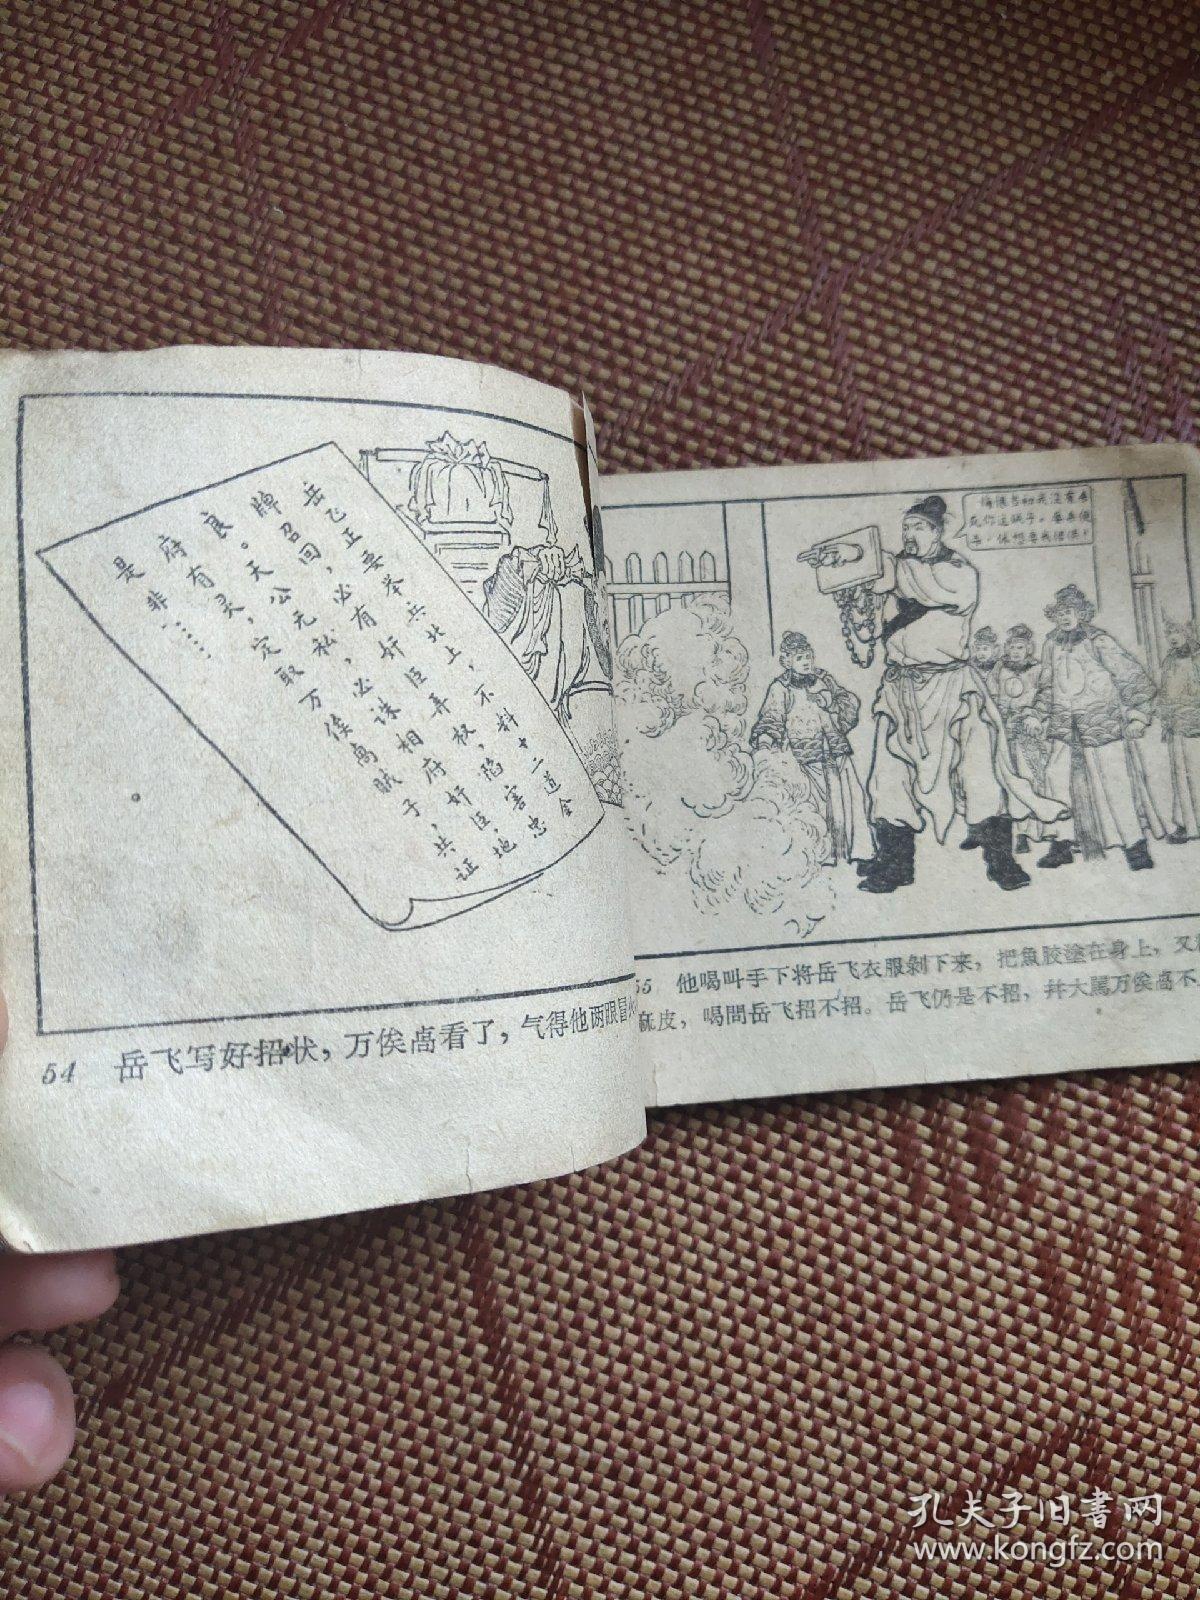 岳飞正要举兵北上，不料十二道金
牌召回，必有奸臣弄权，陷害忠
良。天公无私，必诛相府奸臣，地
府有灵，定取万俟卨贼子，共证
是非……
54 岳飞写好招状，万俟卨看了，气得他两眼冒
悔恨当初我没有
死你这贼子。
，休想要我招供！
55 他喝叫手下将岳飞衣服剝下来，把魚胶塗在身上，又
麻皮，喝問岳飞招不招。岳飞仍是不招，幷大駡万俟卨不
孔夫子旧書网
www.kongfz.com